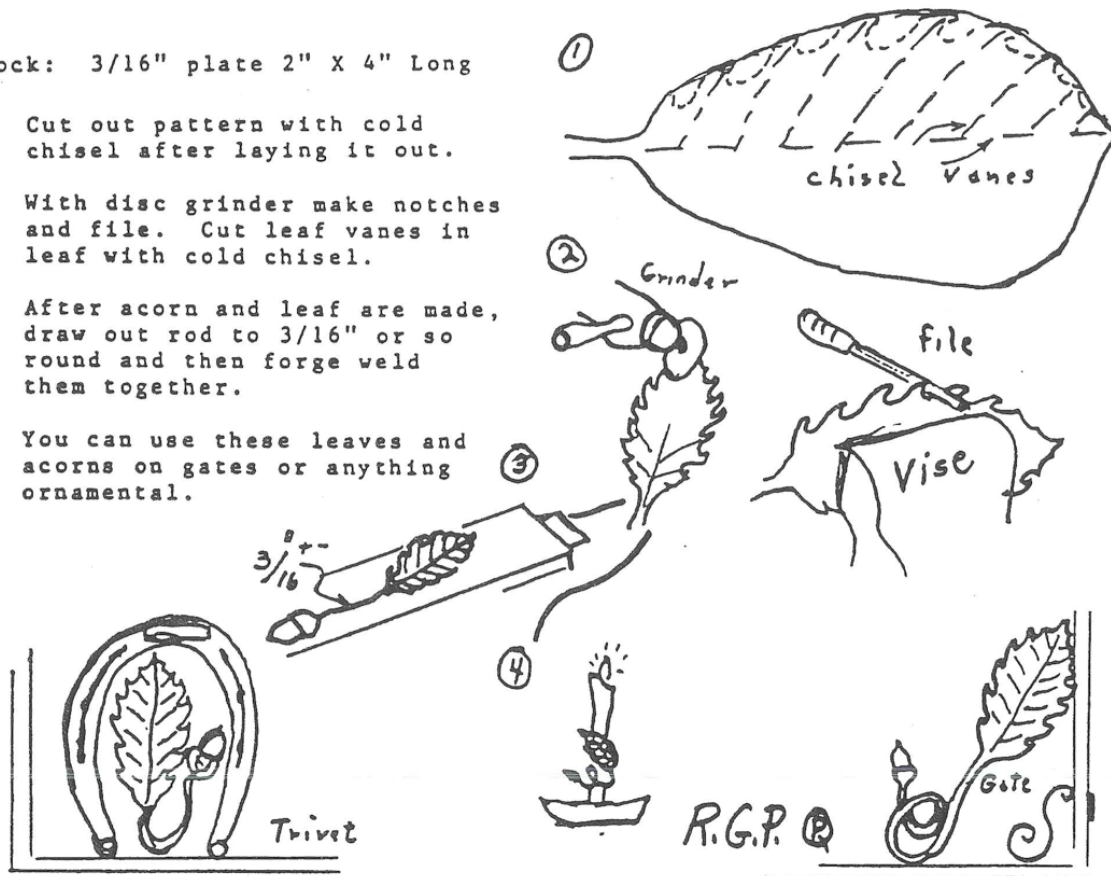 ock: 3/16" plate 2" X 4" Long
Cut out pattern with cold
chisel after laying it out.
With disc grinder make notches
and file. Cut leaf vanes in
leaf with cold chisel.
After acorn and leaf are made,
draw out rod to 3/16" or so
round and then forge weld
them together.
You can use these leaves and
acorns on gates or anything
ornamental.
1
chisel vanes
2
Grinder
file
Vise
3
3/16" +-
4
Trivet
R.G.P. P
Gate